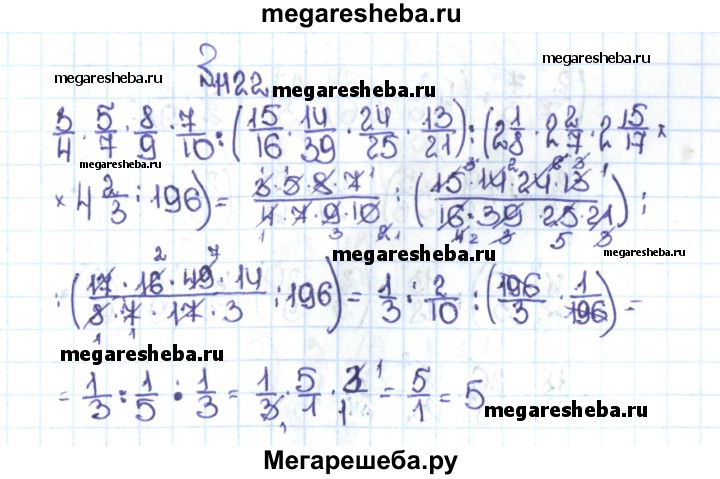 megaresheba.ru
megaresheba.ru
megaresheba.ru
1122
megaresheba.ru
3/4 · 5/7 · 8/9 · 7/10 : (15/16 · 14/39 · 24/25 · 13/21) : (2 1/8 · 2 2/7 · 2 15/17 ×
megaresheba.ru
× 4 2/3 : 196) = 3·5·8·7/4·7·9·10 : (15·14·24·13/16·39·25·21) :
megaresheba.ru
megaresheba.ru
: (17·16·49·14/8·7·17·3 : 196) = 1/3 : 2/10 : (196/3 · 1/196) =
megaresheba.ru
= 1/3 : 1/5 : 1/3 = 1/3 · 5/1 · 3/1 = 5/1 = 5
megaresheba.ru
Мегарешеба.ру